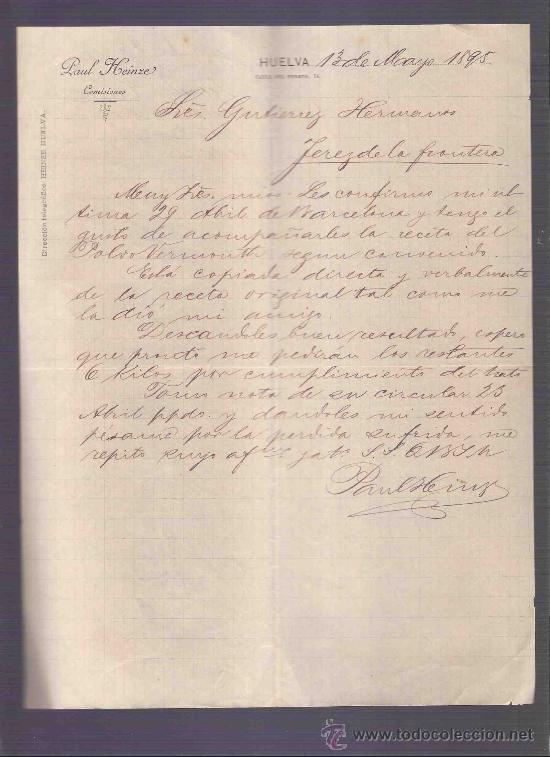 Paul Heinze
Comisiones
HUELVA 13 de Mayo 1895.
Dirección telegráfica: HEINZE HUELVA.
Srés. Gutierrez Hermanos
Jerez de la frontera
Muy Srés. mios. Les confirmo mi ul
tima 29 Abril de Barcelona y tengo el
gusto de acompañarles la receta del
Polvo Vermouth segun convenido.
Está copiada directa y verbalmente
de la receta original tal como me
la dió mi amigo.
Deseandoles buen resultado, espero
que pronto me pediran los restantes
6 Kilos por cumplimiento del trato
Tomo nota de su circular 23
Abril ppdo. y dandoles mi sentido
pésame por la perdida sufrida, me
repito suyo af. S. S. Q B S M
Paul Heinze
www.todocoleccion.net